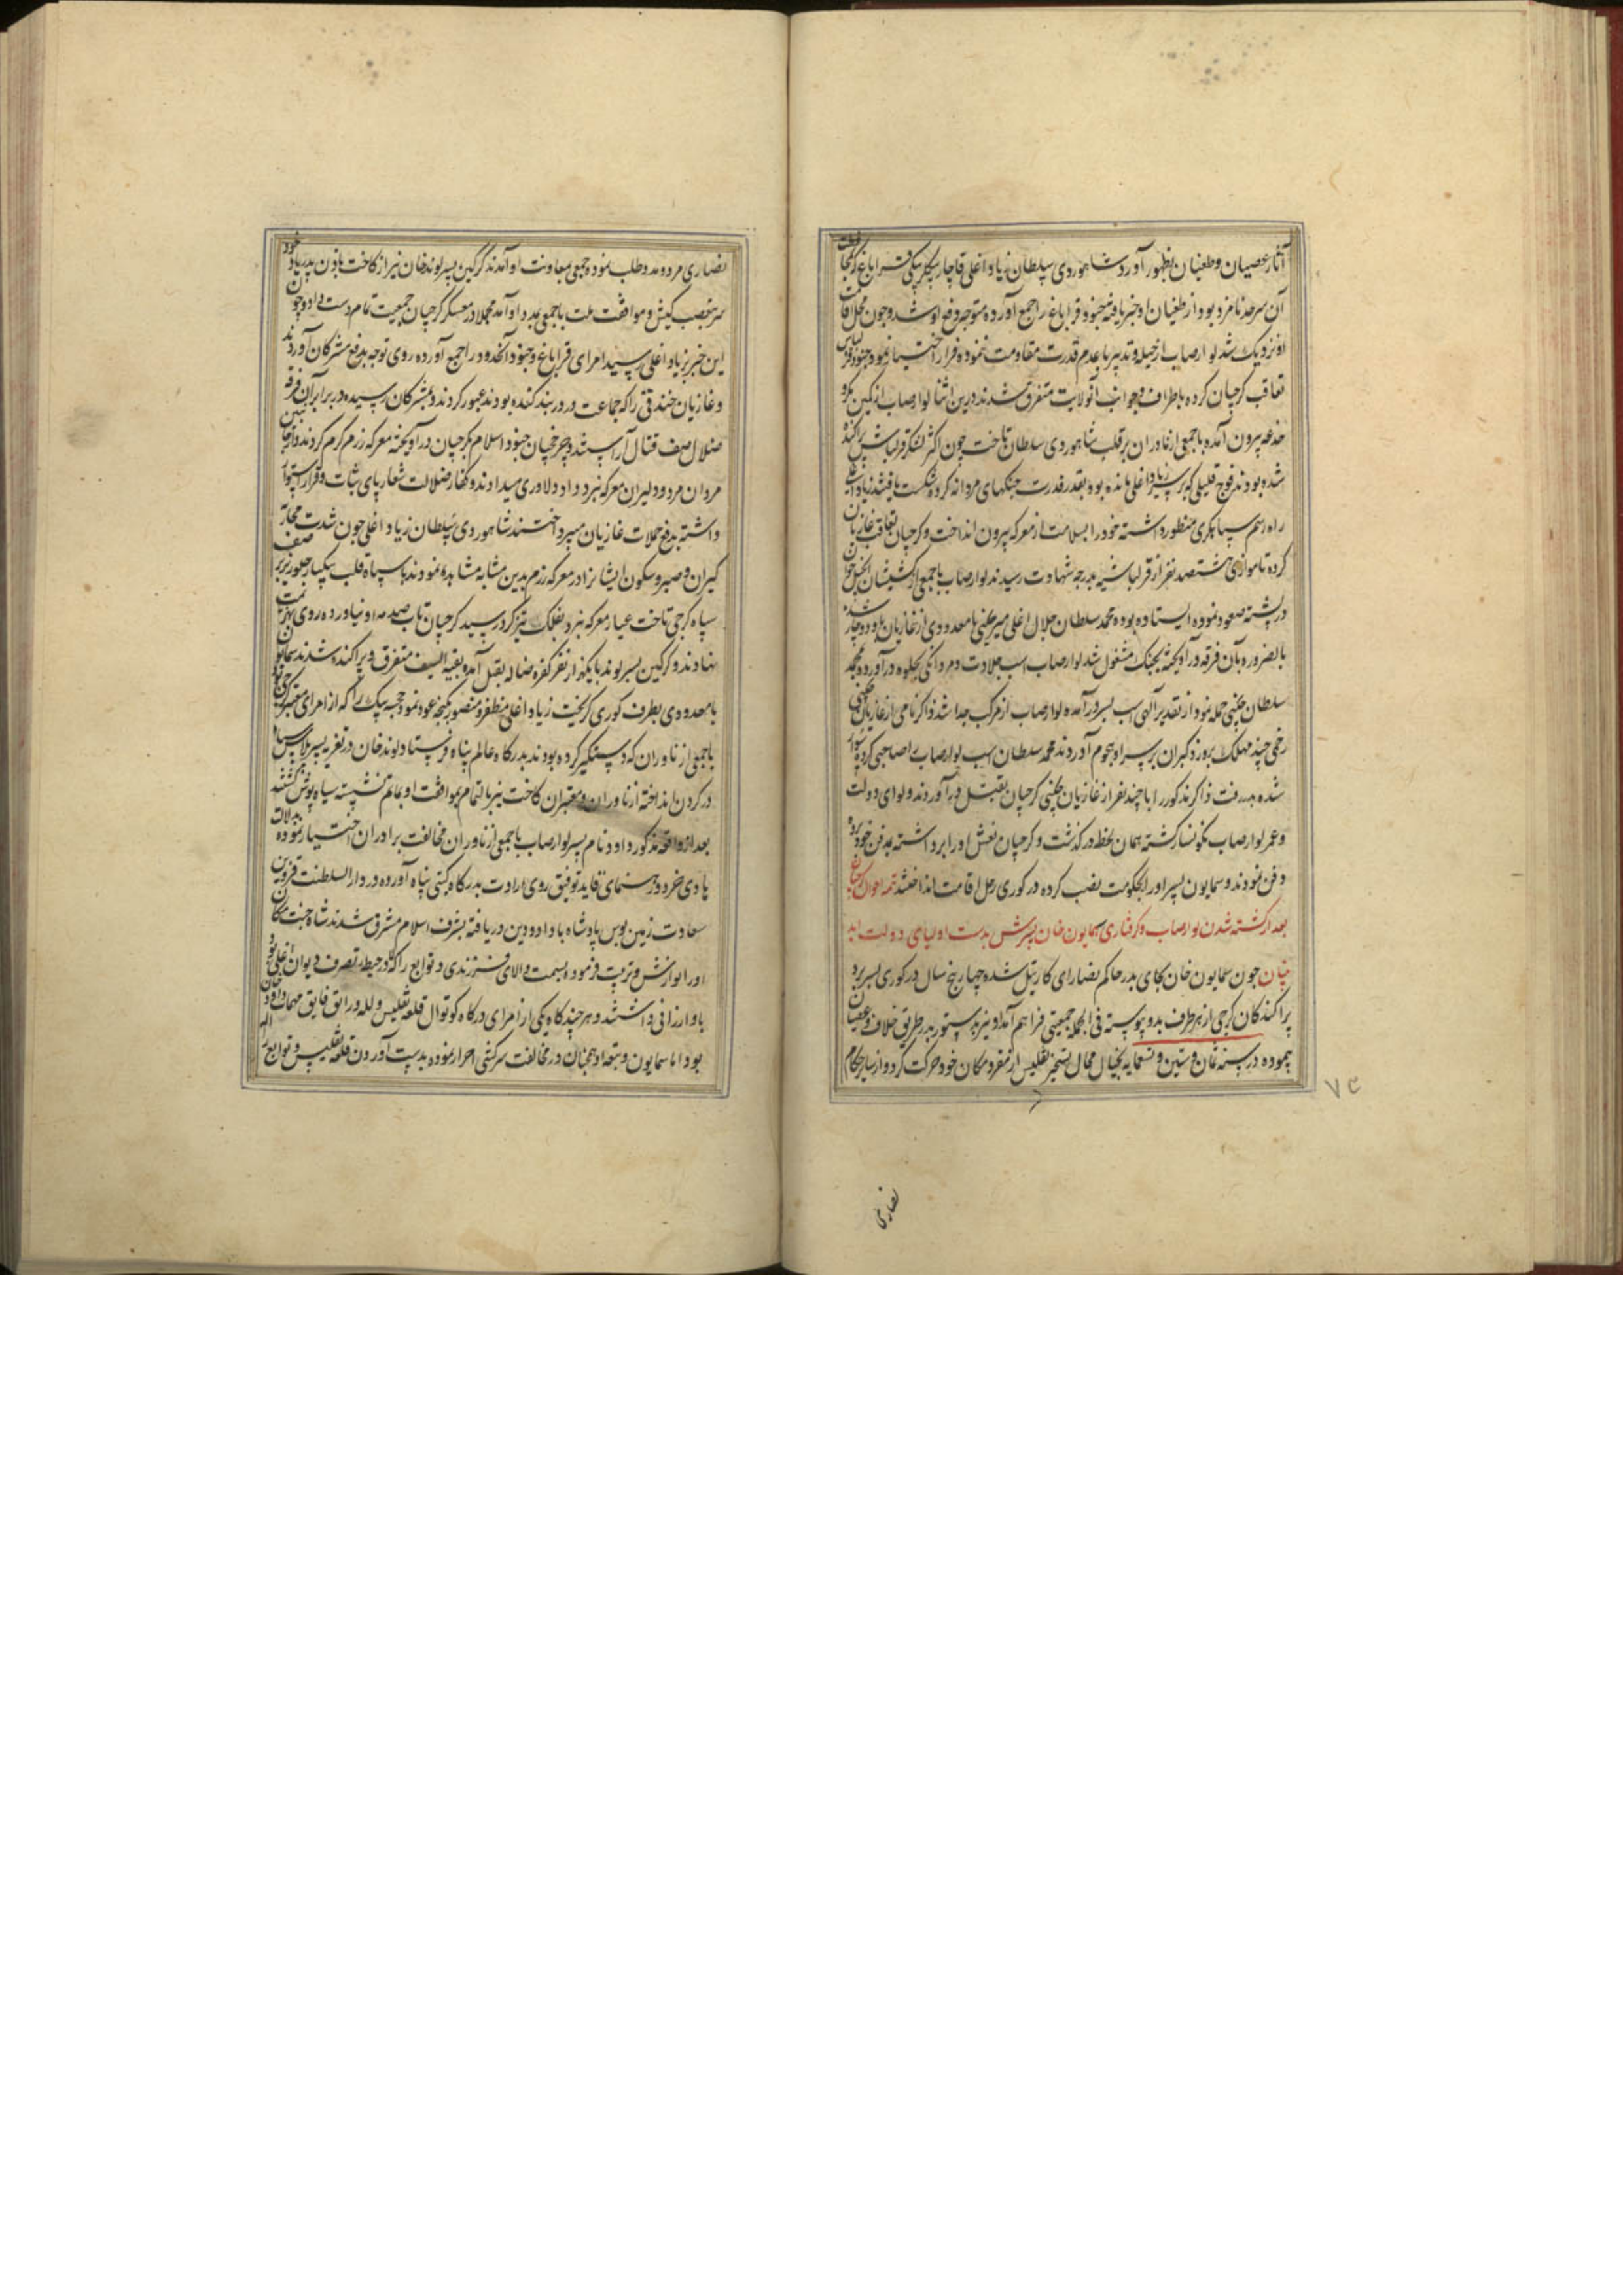 آثار عصیان و طغیان بظهور آورد شاهوردی سلطان زیاد اغلی قاچار بیکلربیکی قراباغ که بمحافظت
آن سرحد نامزد بود از طغیان او خبر یافته جنود قراباغ را جمع آورده متوجه دفع او شد و چون محل اقامت
او نزدیک شد لوارصاب از حیله و تدبیر با عدم قدرت مقاومت ننموده فرار اختیار نمود و جنود قزلباش
تعاقب کرجیان کرده باطراف و جوانب آنولایت متفرق شدند درین اثنا لوارصاب از کمین مکر و
خدعه بیرون آمده با جمعی از ناوران بر قلب شاهوردی سلطان تاخت چون اکثر لشکر قزلباش پراکنده
شده بودند فوج قلیلی که بر سر زیاد اغلی مانده بود بقدر قدرت جنکهای مردانه کرده شکست یافتند زیاد اغلی
راه و رسم سپاهکری منظور داشته خود را بسلامت از معرکه بیرون انداخت و کرجیان تعاقب غازیان
کرده تا موازی هشتصد نفر از قزلباشیه بدرجه شهادت رسیدند لوارصاب با جمعی از کشیشان انجیل خوان
در پشته صعود نموده ایستاده بود محمد سلطان جلال اغلی میر چکنی با معدودی از غازیان باو دوچار شده
بالضروره بآن فرقه در آویخته بجنک مشغول شد لوارصاب اسب جلادت و مردانکی بجلوه درآورده بمحمد
سلطان چکنی حمله نمود از تقدیر آلهی اسب بسر درآمده لوارصاب از مرکب جدا شد ذاکر نامی از غازیان چکنی
زخمی چند مهلک برو زد کبران بر سر او هجوم آوردند محمد سلطان اسب لوارصاب را صاحبی کرده سوار
شده بدر رفت ذاکر مذکور را با چند نفر از غازیان چکنی کرجیان بقتل درآوردند و لوای دولت
و عمر لوارصاب نکونسار کشته همان لحظه درکذشت و کرجیان نعش او را برداشته بمدفن خود برده
دفن نمودند و سمایون پسر او را بحکومت نصب کرده در کوری رحل اقامت انداختند تتمه احوال کرجیان
بعد از کشته شدن لوارصاب و کرفتاری سمایون خان پسرش بدست اولیای دولت ابد
بنیان چون سمایون خان بجای پدر حاکم نصارای کارتیل شده چهار پنج سال در کوری بسر برد
پراکندکان کرجی از هر طرف بدو پیوسته فی الجمله جمعیتی فراهم آمد او نیز بدستور پدر طریق خلاف و عصیان
پیموده در سنه ثمان و ستین و تسعمایه بخیال محال تسخیر تفلیس از مقر و مکان خود حرکت کرد و از سایر حکام
نصاری
۷۴
نصاری مرد و مدد طلب نموده جمعی بمعاونت او آمدند کرکین پسر لوند خان نیز از کاخت باذن پدر یا خود
سر تعصب کیش و موافقت ملت با جمعی بمدد او آمد مجملا در معسکر کرجیان جمعیت تمام دست داد و چون
این خبر بزیاد اغلی رسید امرای قراباغ و جنود آنحدود را جمع آورده روی توجه بدفع مشرکان آوردند
و غازیان خندقی را که جماعت در دربند کنده بودند عبور کردند و بمشرکان رسیده در برابر آن فرقه
ضلال صف قتال آراستند و چرخچیان جنود اسلام بکرجیان درآویخته معرکه رزم کرم کردند و از جانبین
مردان مرد و دلیران معرکه نبرد داد دلاوری میدادند و کفار ضلالت شعار پای ثبات و قرار استوار
داشته بدفع حملات غازیان میپرداختند شاهوردی سلطان زیاد اغلی چون شدت محاربه صف
کیران و صبر و سکون ایشانرا در معرکه رزم بدین مثابه مشاهده نمودند با سپاه قلب یکبار جلوریز بر
سپاه کرجی تاخت غبار معرکه نبرد بفلک تیز کرد رسید کرجیان تاب صدمه او نیاورده روی بهزیمت
نهادند و کرکین پسر لوند با یکهزار نفر کفره ضاله بقتل آمد بقیه السیف متفرق و پراکنده شدند سمایون
با معدودی بطرف کوری کریخت زیاد اغلی مظفر و منصور بکنجه عود نمود
با جمعی از ناوران که دستکیر کرده بودند بدرکاه عالم پناه فرستاد لوند خان در تعزیه پسر پلاس سیاه
در کردن انداخته ازناوران و معتبران کاخت نیز بالتمام بموافقت او بماتم نشسته سیاه پوش کشتند
بعد از واقعه مذکور داود نام پسر لوارصاب با جمعی ازناوران مخالفت برادران اختیار نموده بدلالت
هادی خرد و رهنمای قاید توفیق روی ارادت بدرکاه کیتی پناه آورده در دار السلطنت قزوین
سعادت زمین بوس پادشاه با داد و دین دریافته بشرف اسلام مشرف شدند شاه جنت مکان
او را نوازش و تربیت فرموده بسمت والای فرزندی و توابع را که در حیطه تصرف دیوان اعلی بود
باو ارزانی داشتند و هر چندکاه یکی از امرای درکاه کوتوال قلعه تفلیس و لله و راتق فاتق مهمات داود خان
بود اما سمایون و تبعه او همچنان در مخالفت سرکشی اصرار نموده بدست آوردن قلعه تفلیس و توابع را